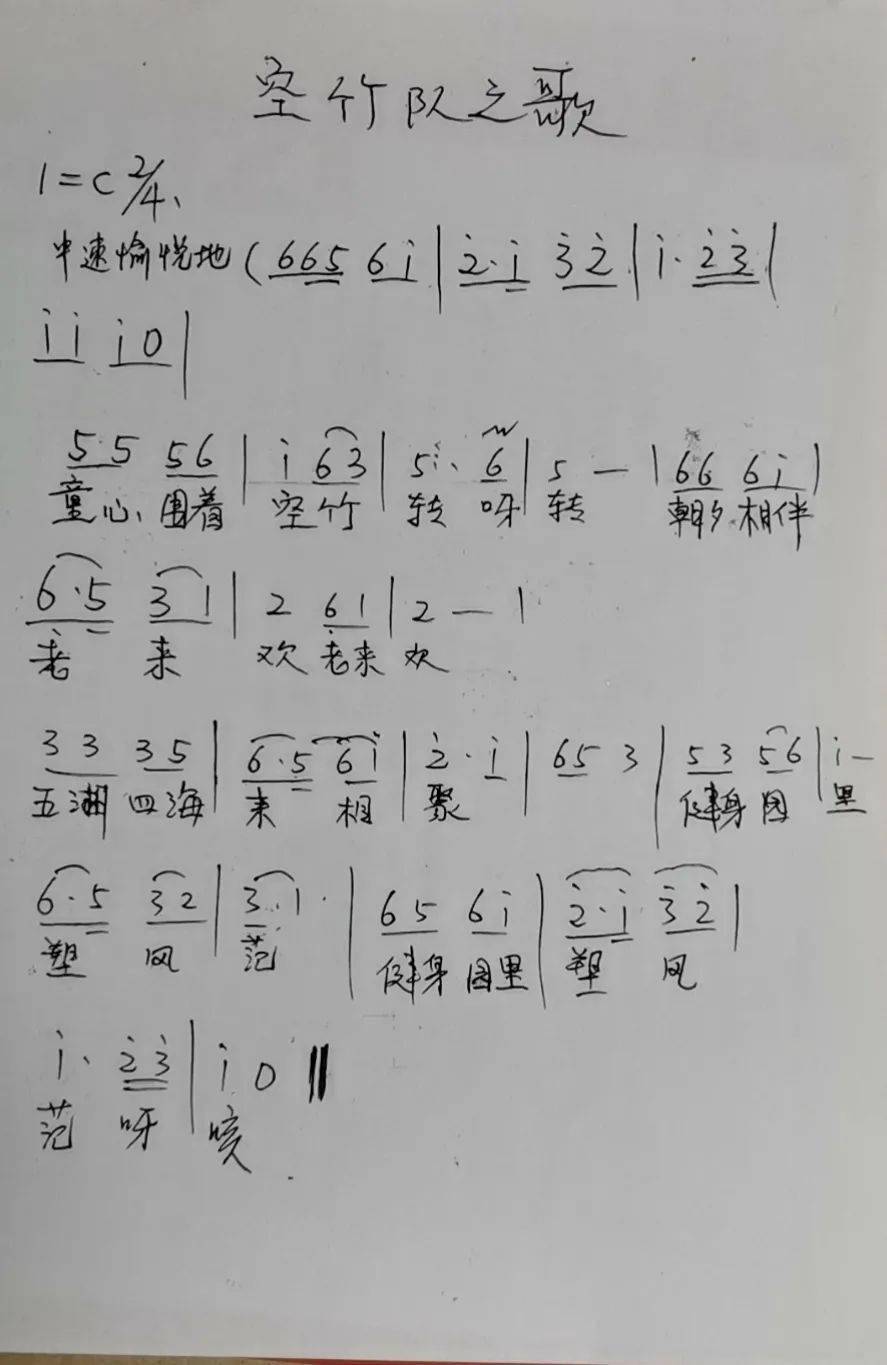 空竹队之歌
1=C 2/4、
中速愉悦地 (665 6i | 2̇·i 3̇2̇ | i·2̇3̇ |
ii i0 |
5·5 56 | i 63 | 5i· 6 | 5 — | 66 6i |
童心、围着 空竹 转 呀 转 朝夕相伴
6·5 31 | 2 6̣1 | 2 — |
老 来 欢 老来 欢
33 35 | 6·5 6i | 2̇·i | 65 3 | 53 56 | i–
五湖 四海 来 相 聚 健身园 里
6·5 32 | 3·1· | 65 6i | 2̇·i 3̇2̇ |
塑 风 范 健身 园里 塑 风
i· 2̇3̇ | i 0 ‖
范 呀 咳